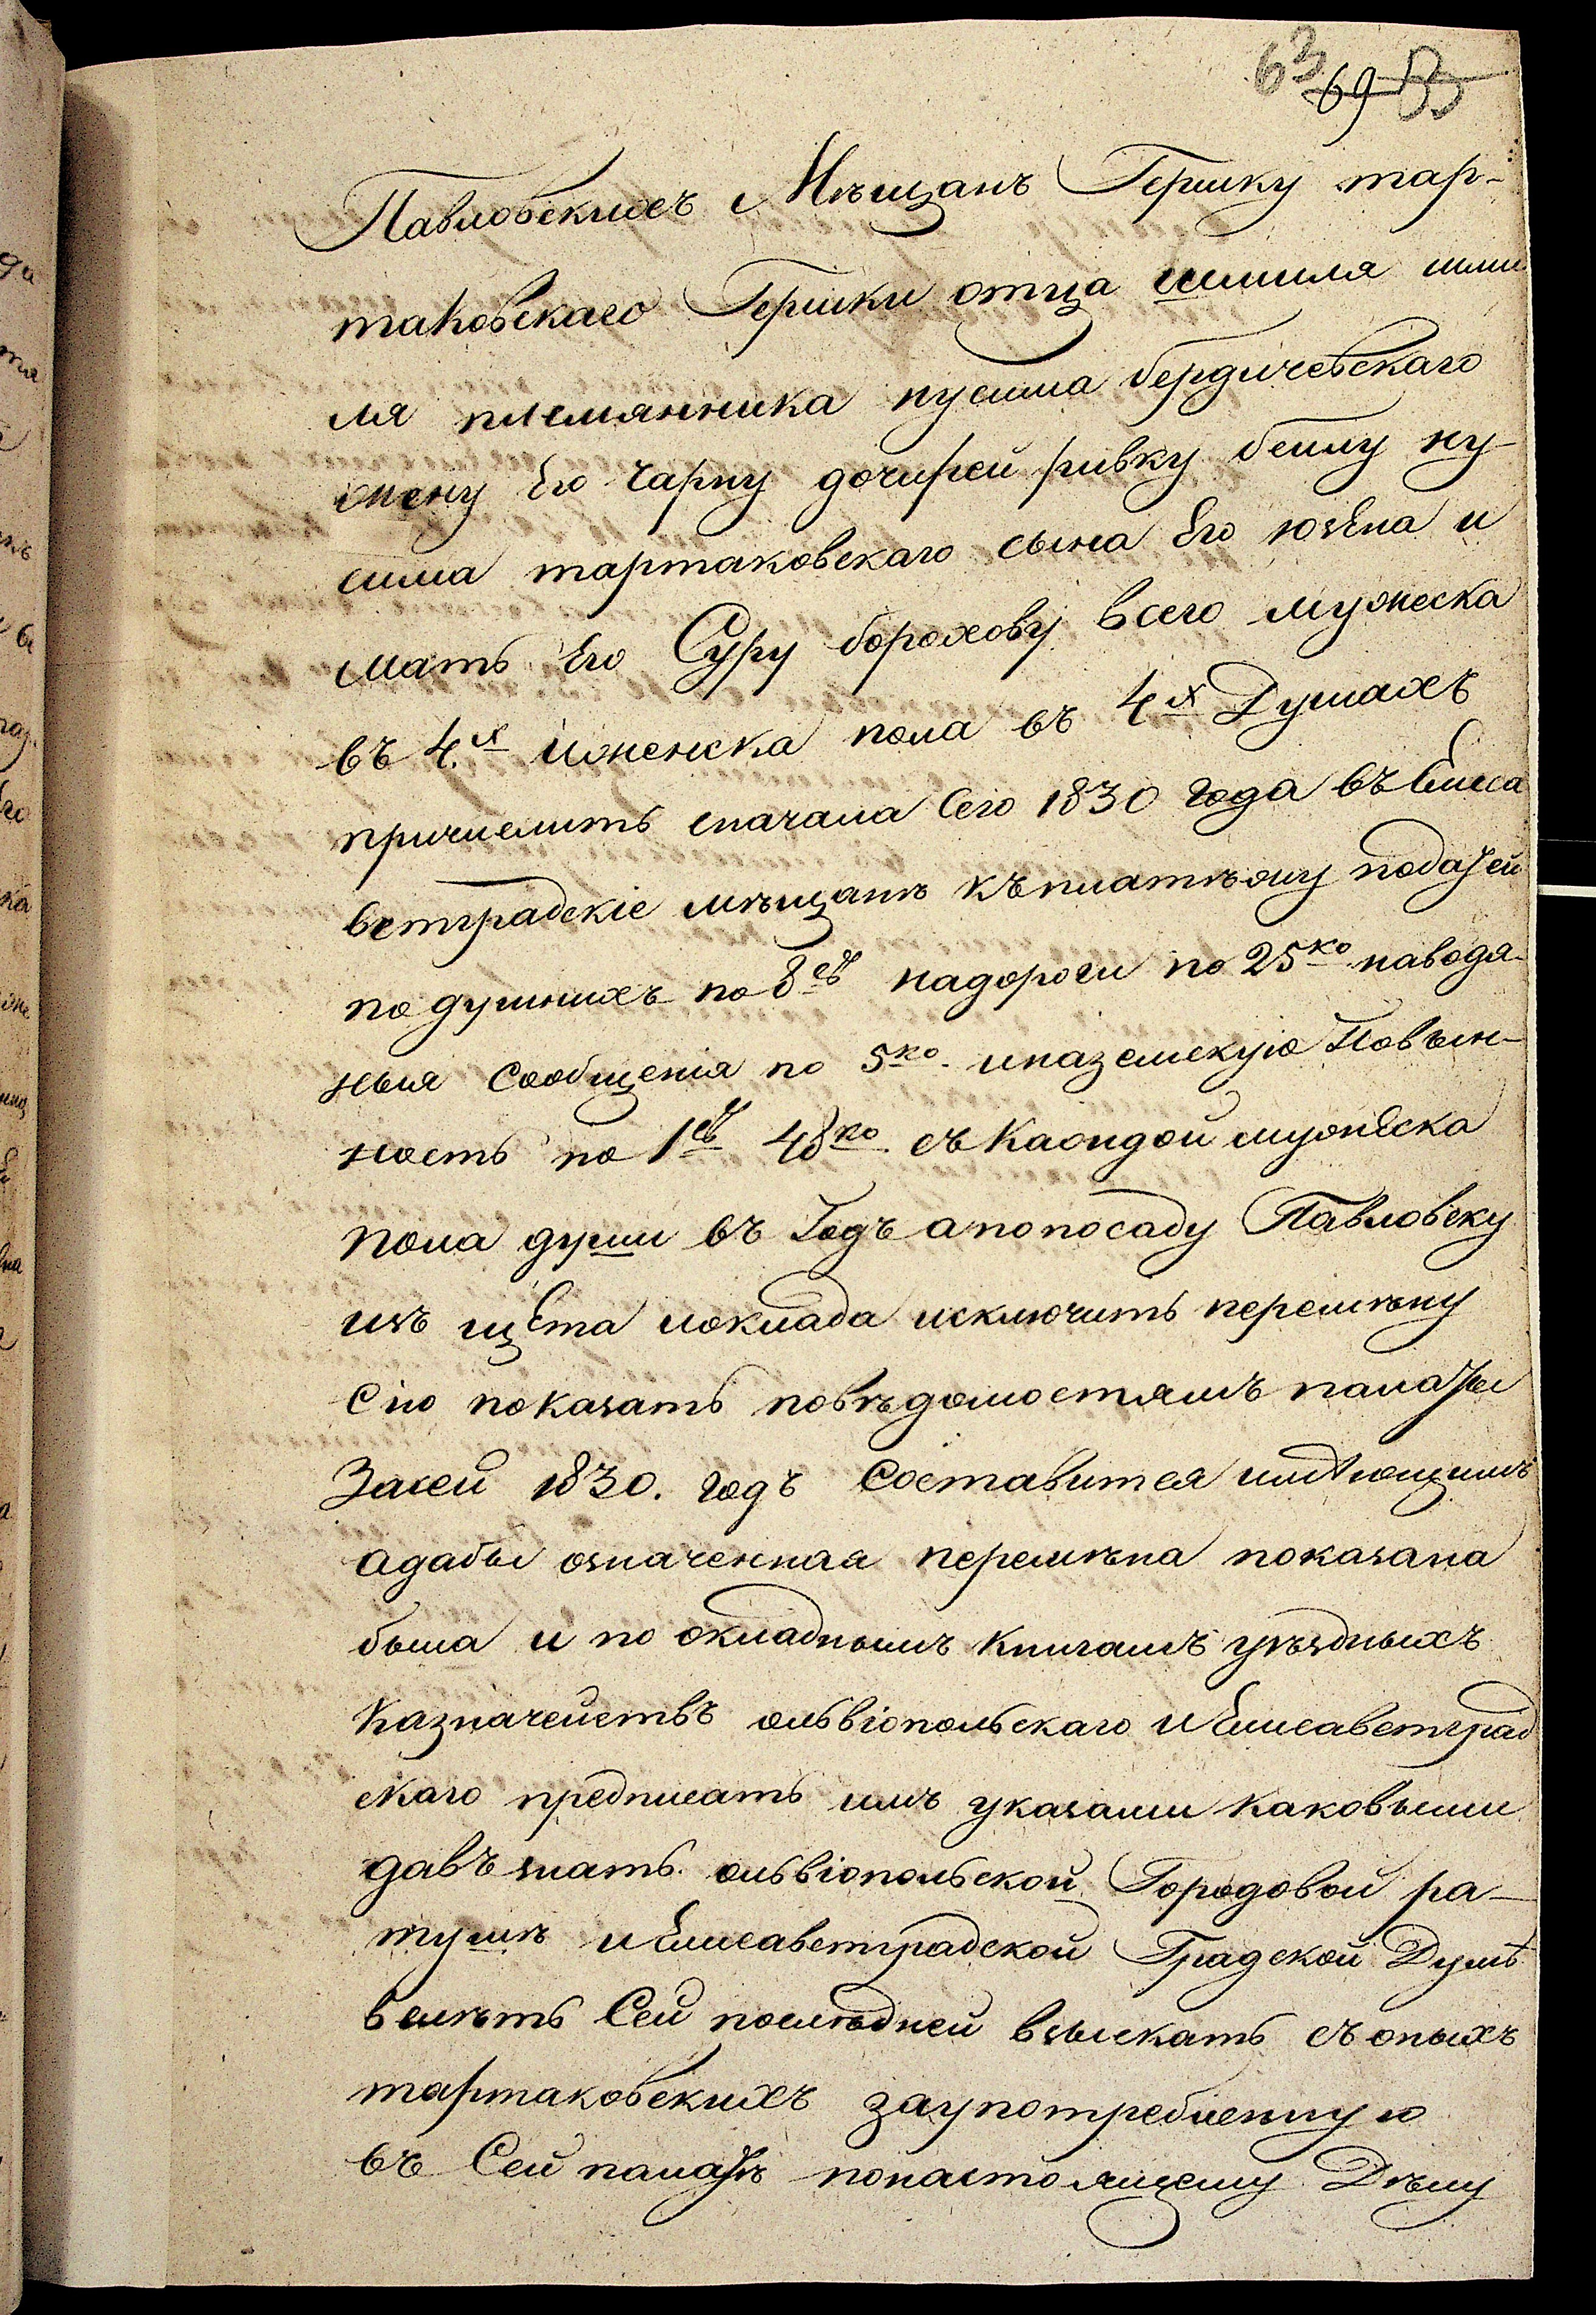 63 69 53
Павловскихъ Мѣщанъ Гершку тар-
таковскаго Гершки отца шмиля шми
ля племянника нусима бердичевскаго
жену Его Чарну дочирей ривку беилу ну-
сима тартаковскаго сына Его юзепа и
мать Его Суру борохову всего мужеска
въ 4.х иженска пола въ 4х Душахъ
причислить сначала Сего 1830 года въ Елиса
ветградскіе мѣщанѣ къ платѣжу податей
подушныхъ по 8 надороги по 25ко наводя-
ныя Сообщенія по 5ко иназемскую Повин-
ность по 1 48ко съ Каждой мужеска
пола души въ Годъ а по посаду Павловску
изъ щета иоклада исключить перемѣну
Сію показать повѣдомостямъ палаты
Засей 1830. годъ Составится имѣющимъ
адабы означенная перемѣна показана
была и по окладнымъ Книгамъ уѣздныхъ
Казначействъ ольвіопольскаго и Елисаветград
скаго предписать имъ указами Каковыми
давъ знать ольвіопольской Городовой ра-
тушѣ и Елисаветградской Градской Думѣ
велѣть Сей послѣдней взыскать съ оныхъ
тартаковскихъ заупотребленную
въ Сей палатѣ понастоящему Дѣлу